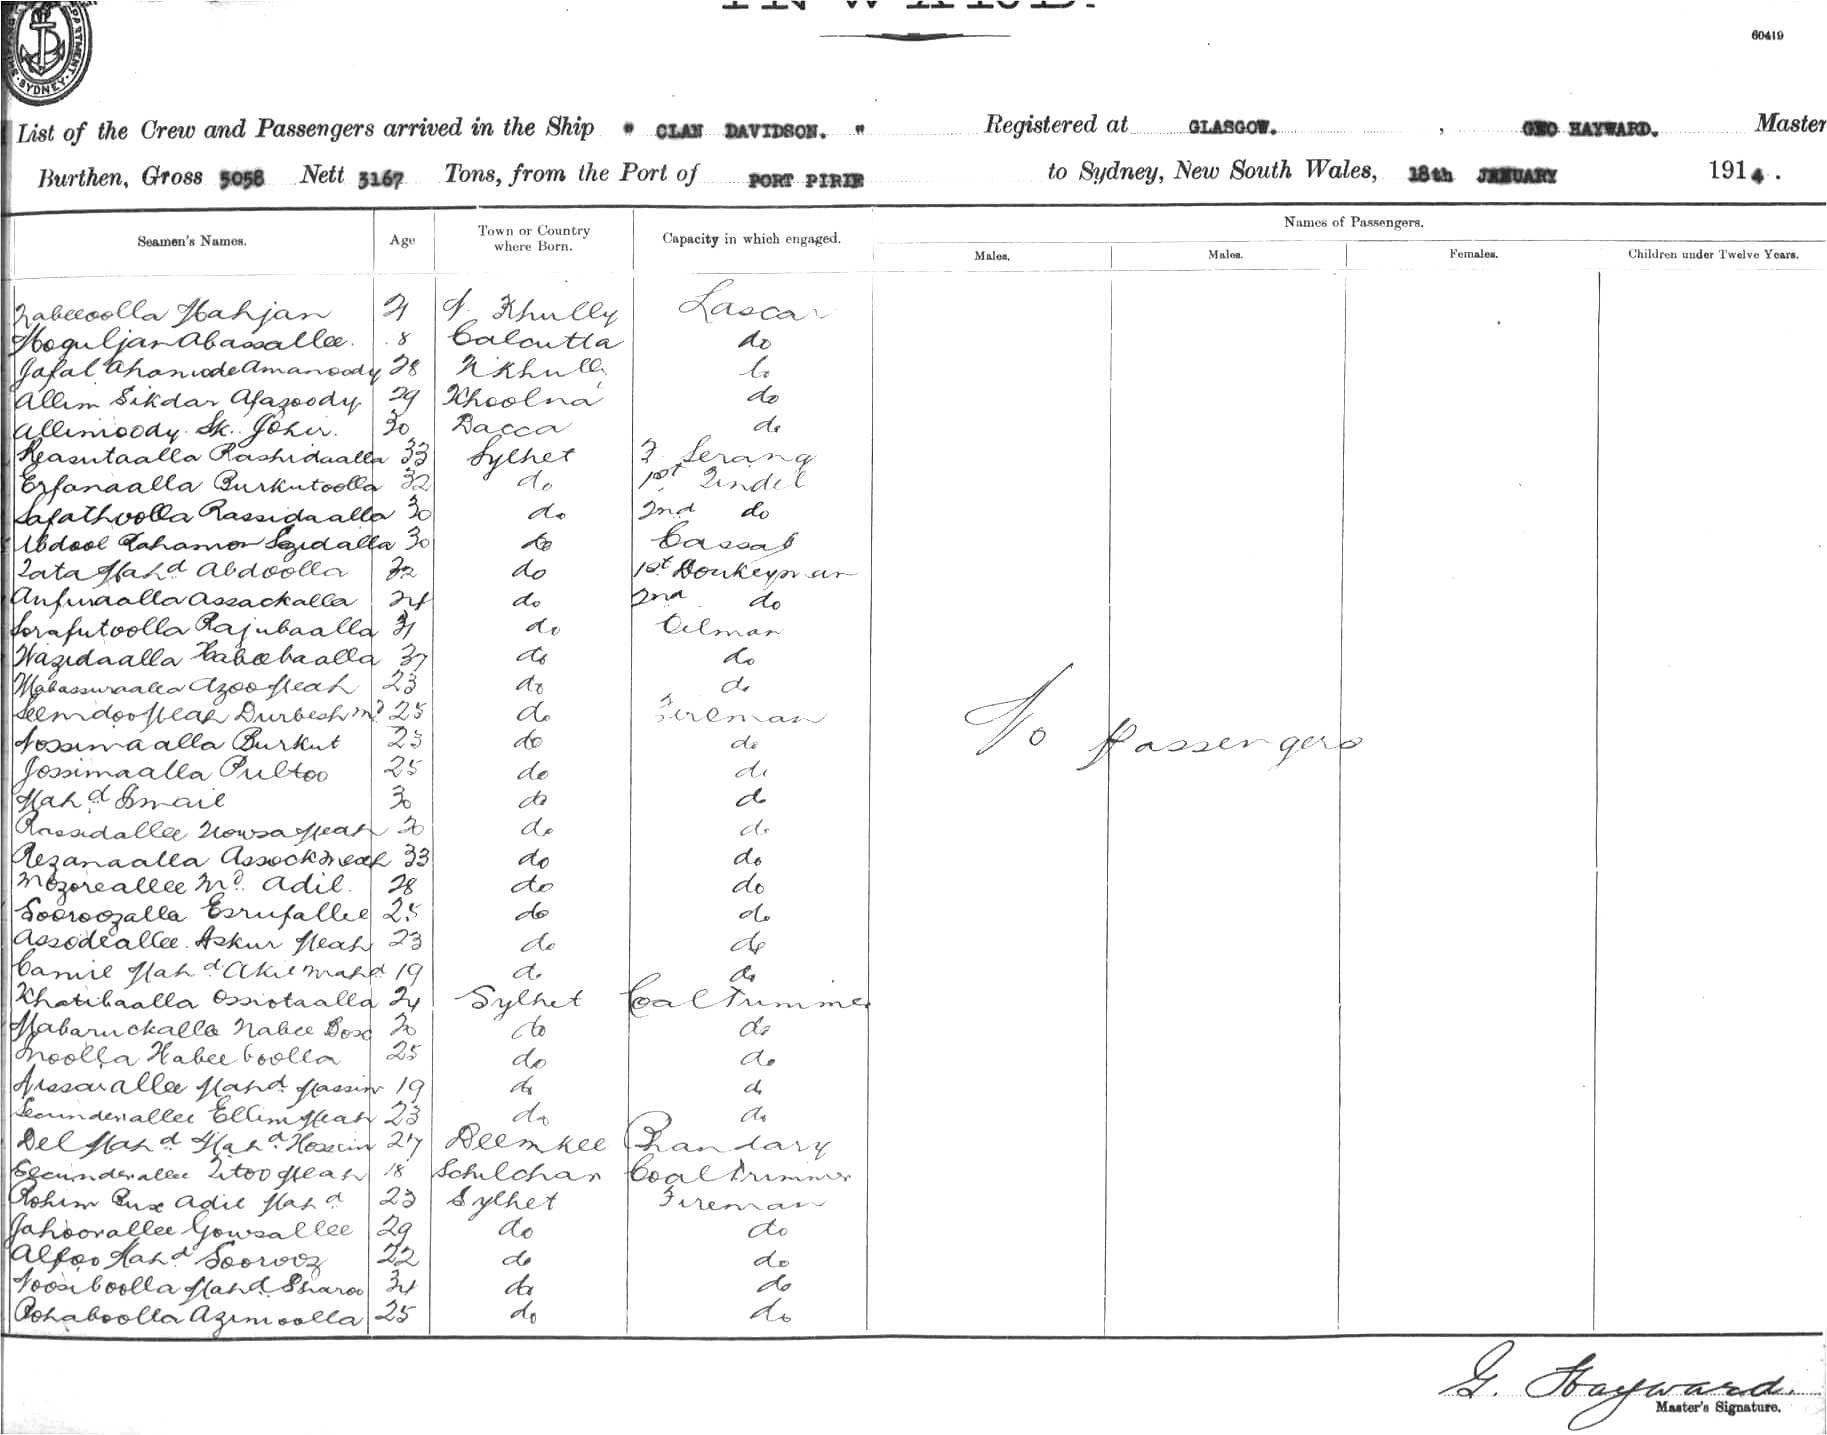 INWARD.
60419
SYDNEY
List of the Crew and Passengers arrived in the Ship " CLAN DAVIDSON. " Registered at GLASGOW. , GEO HAYWARD. Master
Burthen, Gross 5058 Nett 3167 Tons, from the Port of PORT PIRIE to Sydney, New South Wales, 18th JANUARY 1914.
Seamen's Names. Age Town or Country where Born. Capacity in which engaged. Names of Passengers.
Males. Males. Females. Children under Twelve Years.
Nabeeoolla Mahjan 21 N. Khully Lascar
Moguljan Abassallee. 8 Calcutta do
Jafal Ahamode Amanoody 28 N Khully do
Allim Sikdar Afazoody 29 Khoolna do
Allimoody Sk. Johir. 30 Dacca do
Reasutaalla Rashidaalla 33 Sylhet F Serang
Erfanaalla Burkutoolla 32 do 1st Tindel
Safathoolla Rassidaalla 30 do 2nd do
Abdool Rahamon Sazidalla 30 do Cassab
Tata Mahd Abdoolla 32 do 1st Donkeyman
Anfuraalla Assackalla 24 do 2nd do
Sorafutoolla Rajubaalla 31 do Oilman
Wazidaalla Habeebaalla 37 do do
Mabassuraalla Azoo Meah 23 do do
Seemdoo Meah Durbesh Md 25 do Fireman
Nossimaalla Burkut 23 do do
Jossimaalla Pultoo 25 do do
Mahd Ismail 30 do do
Rassidallee Nowsa Meah 30 do do
Rezanaalla Assock Meah 33 do do
Mozoreallee Md. Adil. 28 do do
Sooroozalla Esrufallee 25 do do
Assodeallee Askur Meah 23 do do
Camil Mahd Akil Mahd 19 do do
Khatibaalla Ossiotaalla 24 Sylhet Coal Trimmer
Mabaruckalla Nabee Box 30 do do
Moolla Habeeboolla 25 do do
Nissarallee Mahd Massim 19 do do
Secunderallee Ellim Meah 23 do do
Del Mahd Mahd. Hossein 27 Deemkee Bhandary
Secunderallee Titoo Meah 18 Schilchar Coal Trimmer
Rohim Bux Adil Mahd 23 Sylhet Fireman
Jahoorallee Gowsallee 29 do do
Alfoo Mahd Soorooz 22 do do
Noosiboolla Mahd. Sharoo 34 do do
Rohaboolla Azimoolla 25 do do
No Passengers
G. Hayward.
Master's Signature.